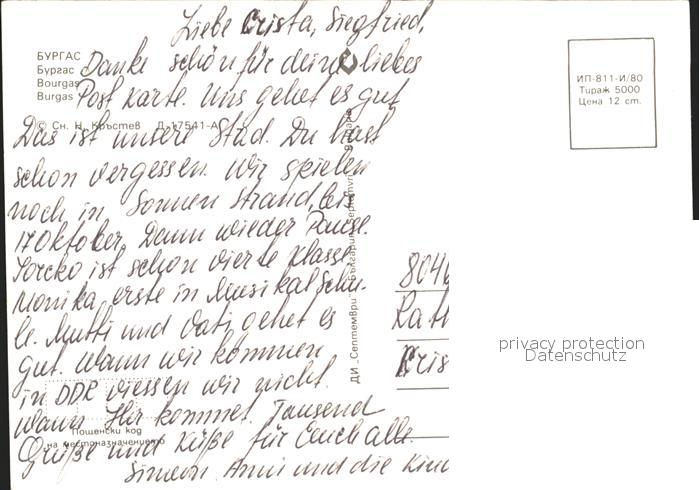 Liebe Crista, Siegfried,
Danke schön für deine liebes
Post karte. Uns gehet es gut
Das ist unsere Stad. Du hast
schon vergessen. Wir spielen
noch in Sonnen strand, bis
17 Oktober. Dann wieder Pause.
ist schon vierte Klasse
Monika, erste in Musikal Schu-
le. Mutti und Vati, gehet es
gut. Wann wir kommen
in DDR wiessen wir nicht.
Wann Ihr kommet. Tausend
Grüße und Küße für Euch alle.
Simeon, Anni und die Kind
БУРГАС
Бургас
Bourgas
Burgas
© Сн. Н. Кръстев Д-17541-А
ДИ „Септември"
ИП-811-И/80
Тираж 5000
Цена 12 ст.
8046
Rath
Cris
Пощенски код
на местоназначението
privacy protection
Datenschutz